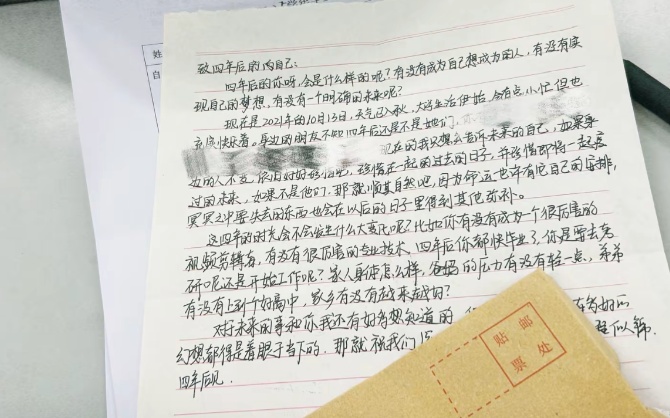 致四年后的自己:
四年后的你呀,会是什么样的呢?有没有成为自己想成为的人,有没有实
现自己的梦想,有没有一个明确的未来呢?
现在是2021年的10月13日,天气已入秋,大学生活伊始,会有点小忙但也
充实快乐着。身边的朋友不知四年后还是不是她们,
现在的我只想告诉未来的自己,如果身
边的人不变,依旧好好珍惜吧,珍惜在一起的过去的日子,并珍惜即将一起度
过的未来,如果不是他们,那就顺其自然吧,因为命运也许有它自己的安排,
冥冥之中要失去的东西也会在以后的日子里得到其他弥补。
这四年的时光会不会发生什么大变化呢?比如你有没有成为一个很厉害的
视频剪辑者,有没有很厉害的专业技术,四年后你都快毕业了,你是要去考
研呢还是开始工作呢?家人身体怎么样,爸妈的压力有没有轻一点,弟弟
有没有上到个好高中,家乡有没有越来越好?
对于未来的事和你我还有好多想知道的,
幻想都得是着眼于当下的,那就祝我们
四年后见.
贴 邮
票 处
姓
自